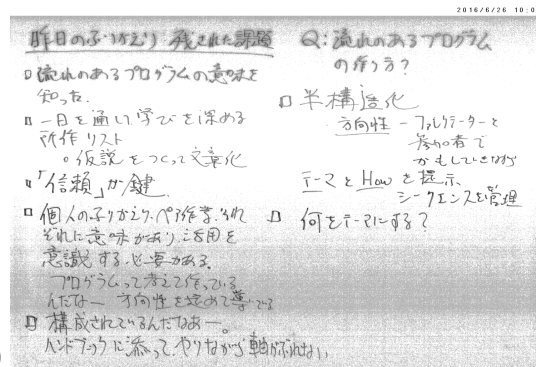 2016/6/26 10:0
昨日のふりかえり・残された課題
流れのあるプログラムの意味を
知った。
一日を通して学びを深める
所作リスト
仮説をつくって文章化
「信頼」が鍵
個人のふりかえり、ペア作業、それ
ぞれに意味があり、活用を
意識する必要がある。
プログラムって考えて作っている
んだなー 方向性を定めて
構成されているんだなあー。
ハンドブックに添って、やりながら軸がぶれない
Q:流れのあるプログラム
の作り方?
半構造化
方向性 - ファシリテーターと
参加者で
かもしていきながら
テーマとHowを提示、
シークエンスを管理
何をテーマにする?